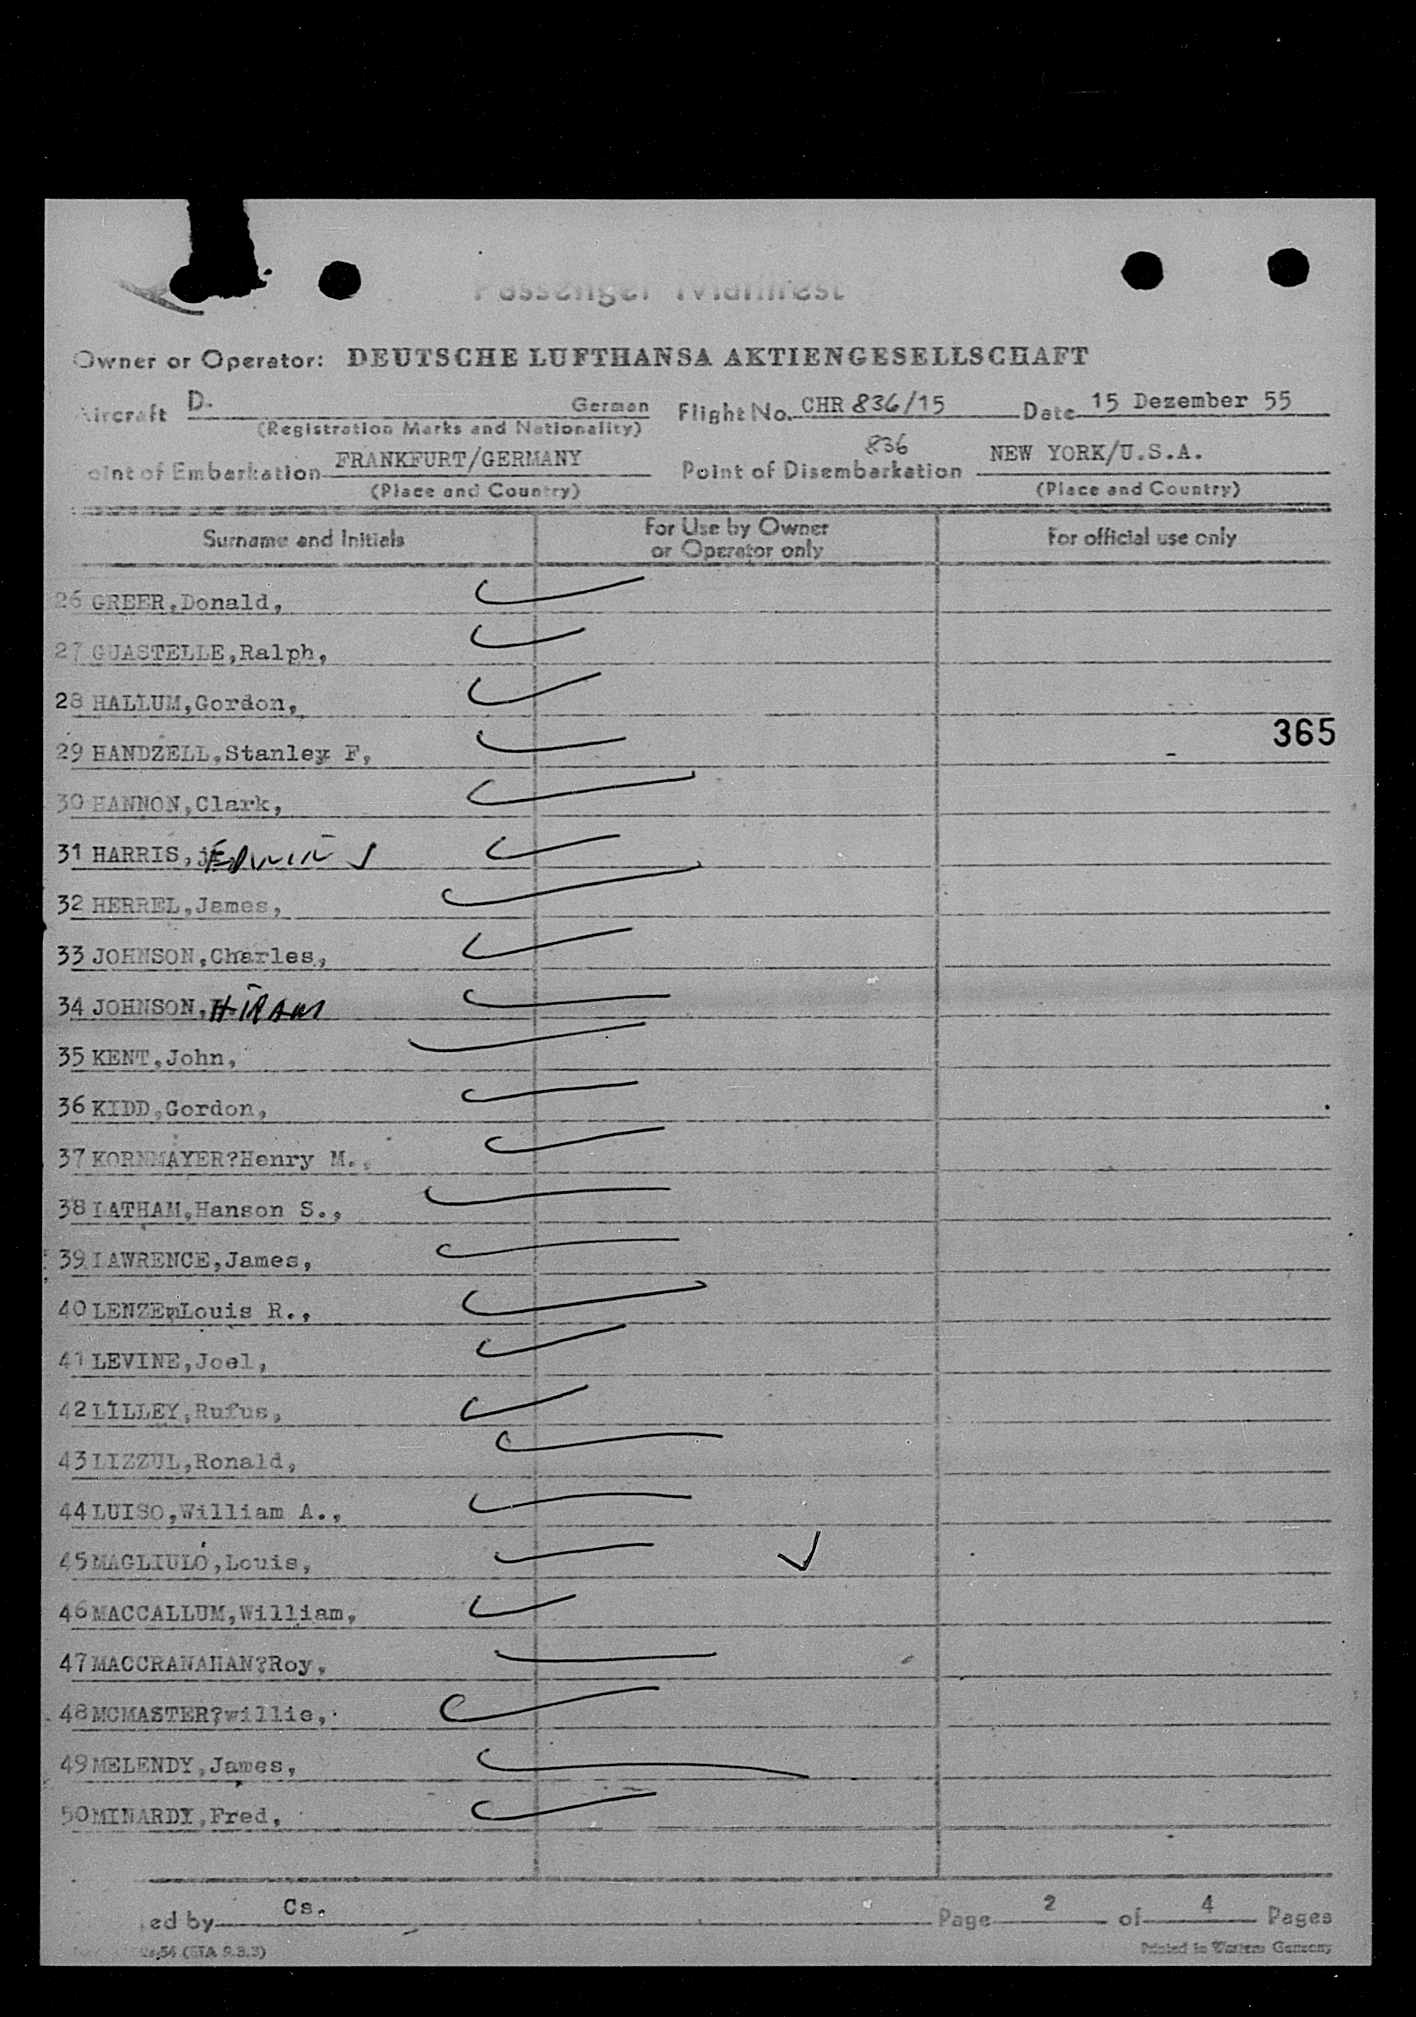 Passenger Manifest
Owner or Operator: DEUTSCHE LUFTHANSA AKTIENGESELLSCHAFT
Aircraft D. German Flight No. CHR 836/15 Date 15 Dezember 55
(Registration Marks and Nationality)
836
Point of Embarkation FRANKFURT/GERMANY Point of Disembarkation NEW YORK/U.S.A.
(Place and Country) (Place and Country)
Surname and Initials For Use by Owner or Operator only For official use only
26 GREER,Donald,
27 GUASTELLE,Ralph,
28 HALLUM,Gordon,
365
29 HANDZELL,Stanley F,
30 HANNON,Clark,
31 HARRIS, EDWIN J
32 HERREL,James,
33 JOHNSON,Charles,
34 JOHNSON,HIRAM
35 KENT,John,
36 KIDD,Gordon,
37 KORNMAYER?Henry M.,
38 LATHAM,Hanson S.,
39 LAWRENCE,James,
40 LENZE,Louis R.,
41 LEVINE,Joel,
42 LILLEY,Rufus,
43 LIZZUL,Ronald,
44 LUISO,William A.,
45 MAGLIULO,Louis,
46 MACCALLUM,William,
47 MACCRANAHAN?Roy,
48 MCMASTER?willie,
49 MELENDY,James,
50 MINARDI,Fred,
ed by Cs. Page 2 of 4 Pages
54 (STA 9.3.3) Printed in Western Germany